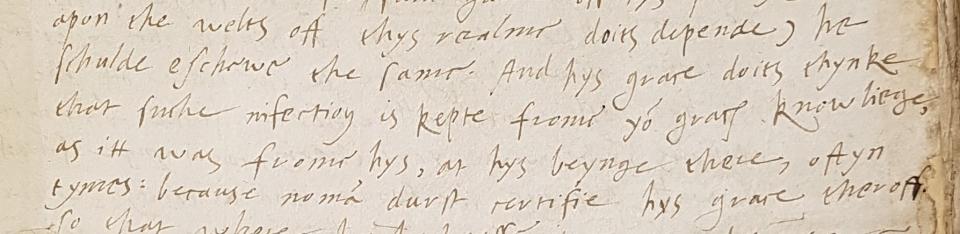 apon the welts off thys realme doits depende) he
schulde eschewe the same. And hys grace doits thynke
that suche infection is kepte frome yor graces knowliege,
as itt was frome hys, at hys beynge there, oftyn
tymes: because nomã durst certifie hys grace theroff.
so that where